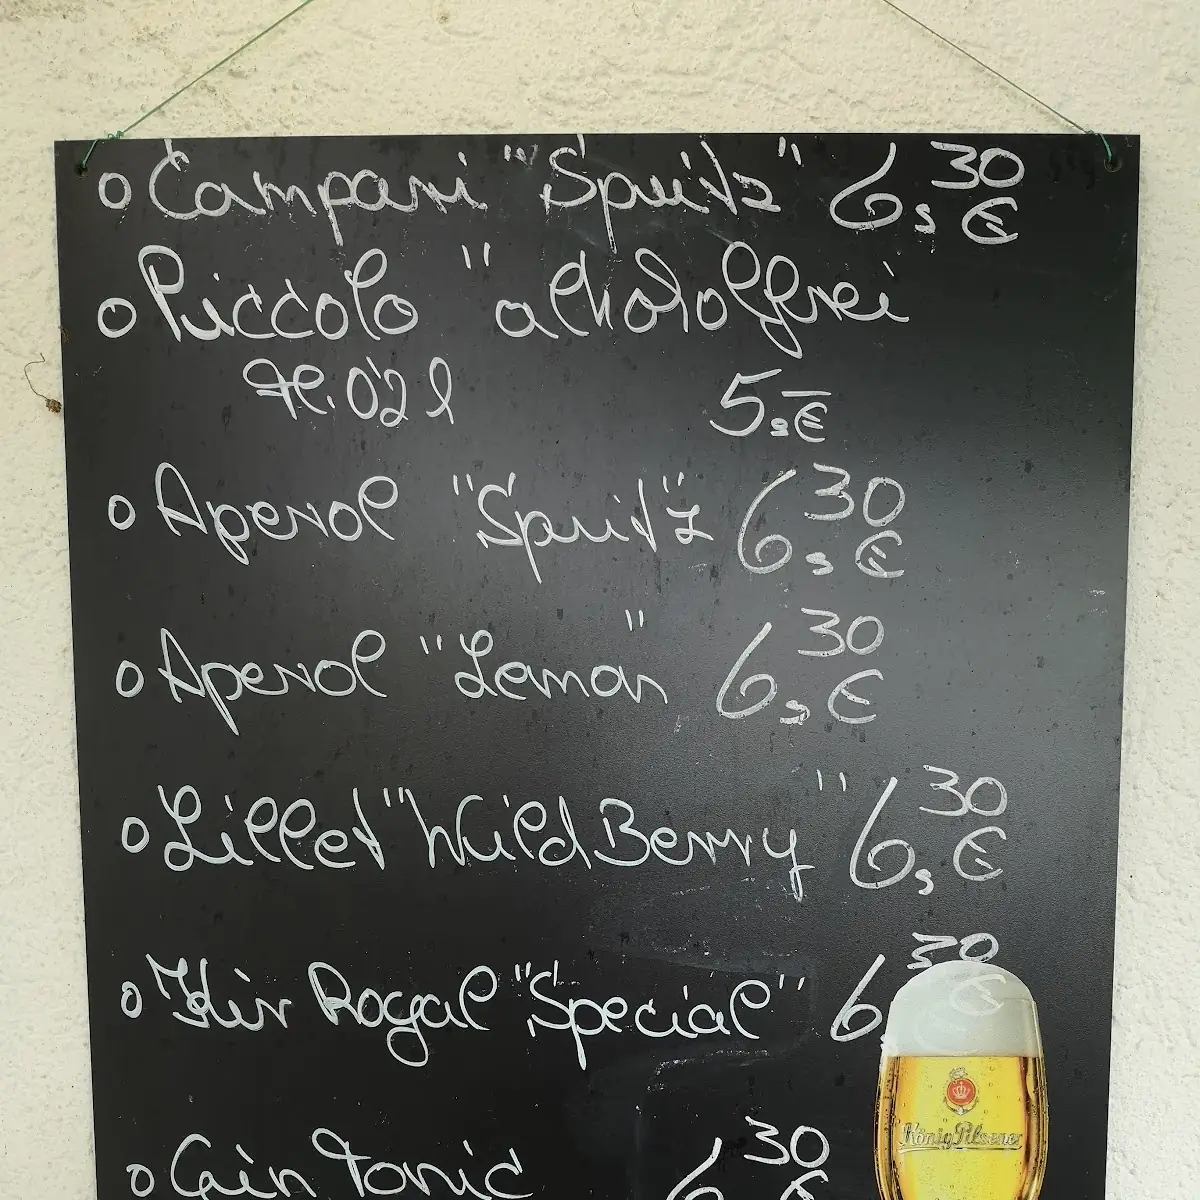 o Campari "Spritz" 6,30 €
o Piccolo "alkoholfrei
Fl. 0'2 l 5,- €
o Aperol "Spritz" 6,30 €
o Aperol "Lemon" 6,30 €
o Lillet "Wild Berry" 6,30 €
o Kir Royal "Special" 6,30 €
König Pilsener
o Gin Tonic 6,30 €